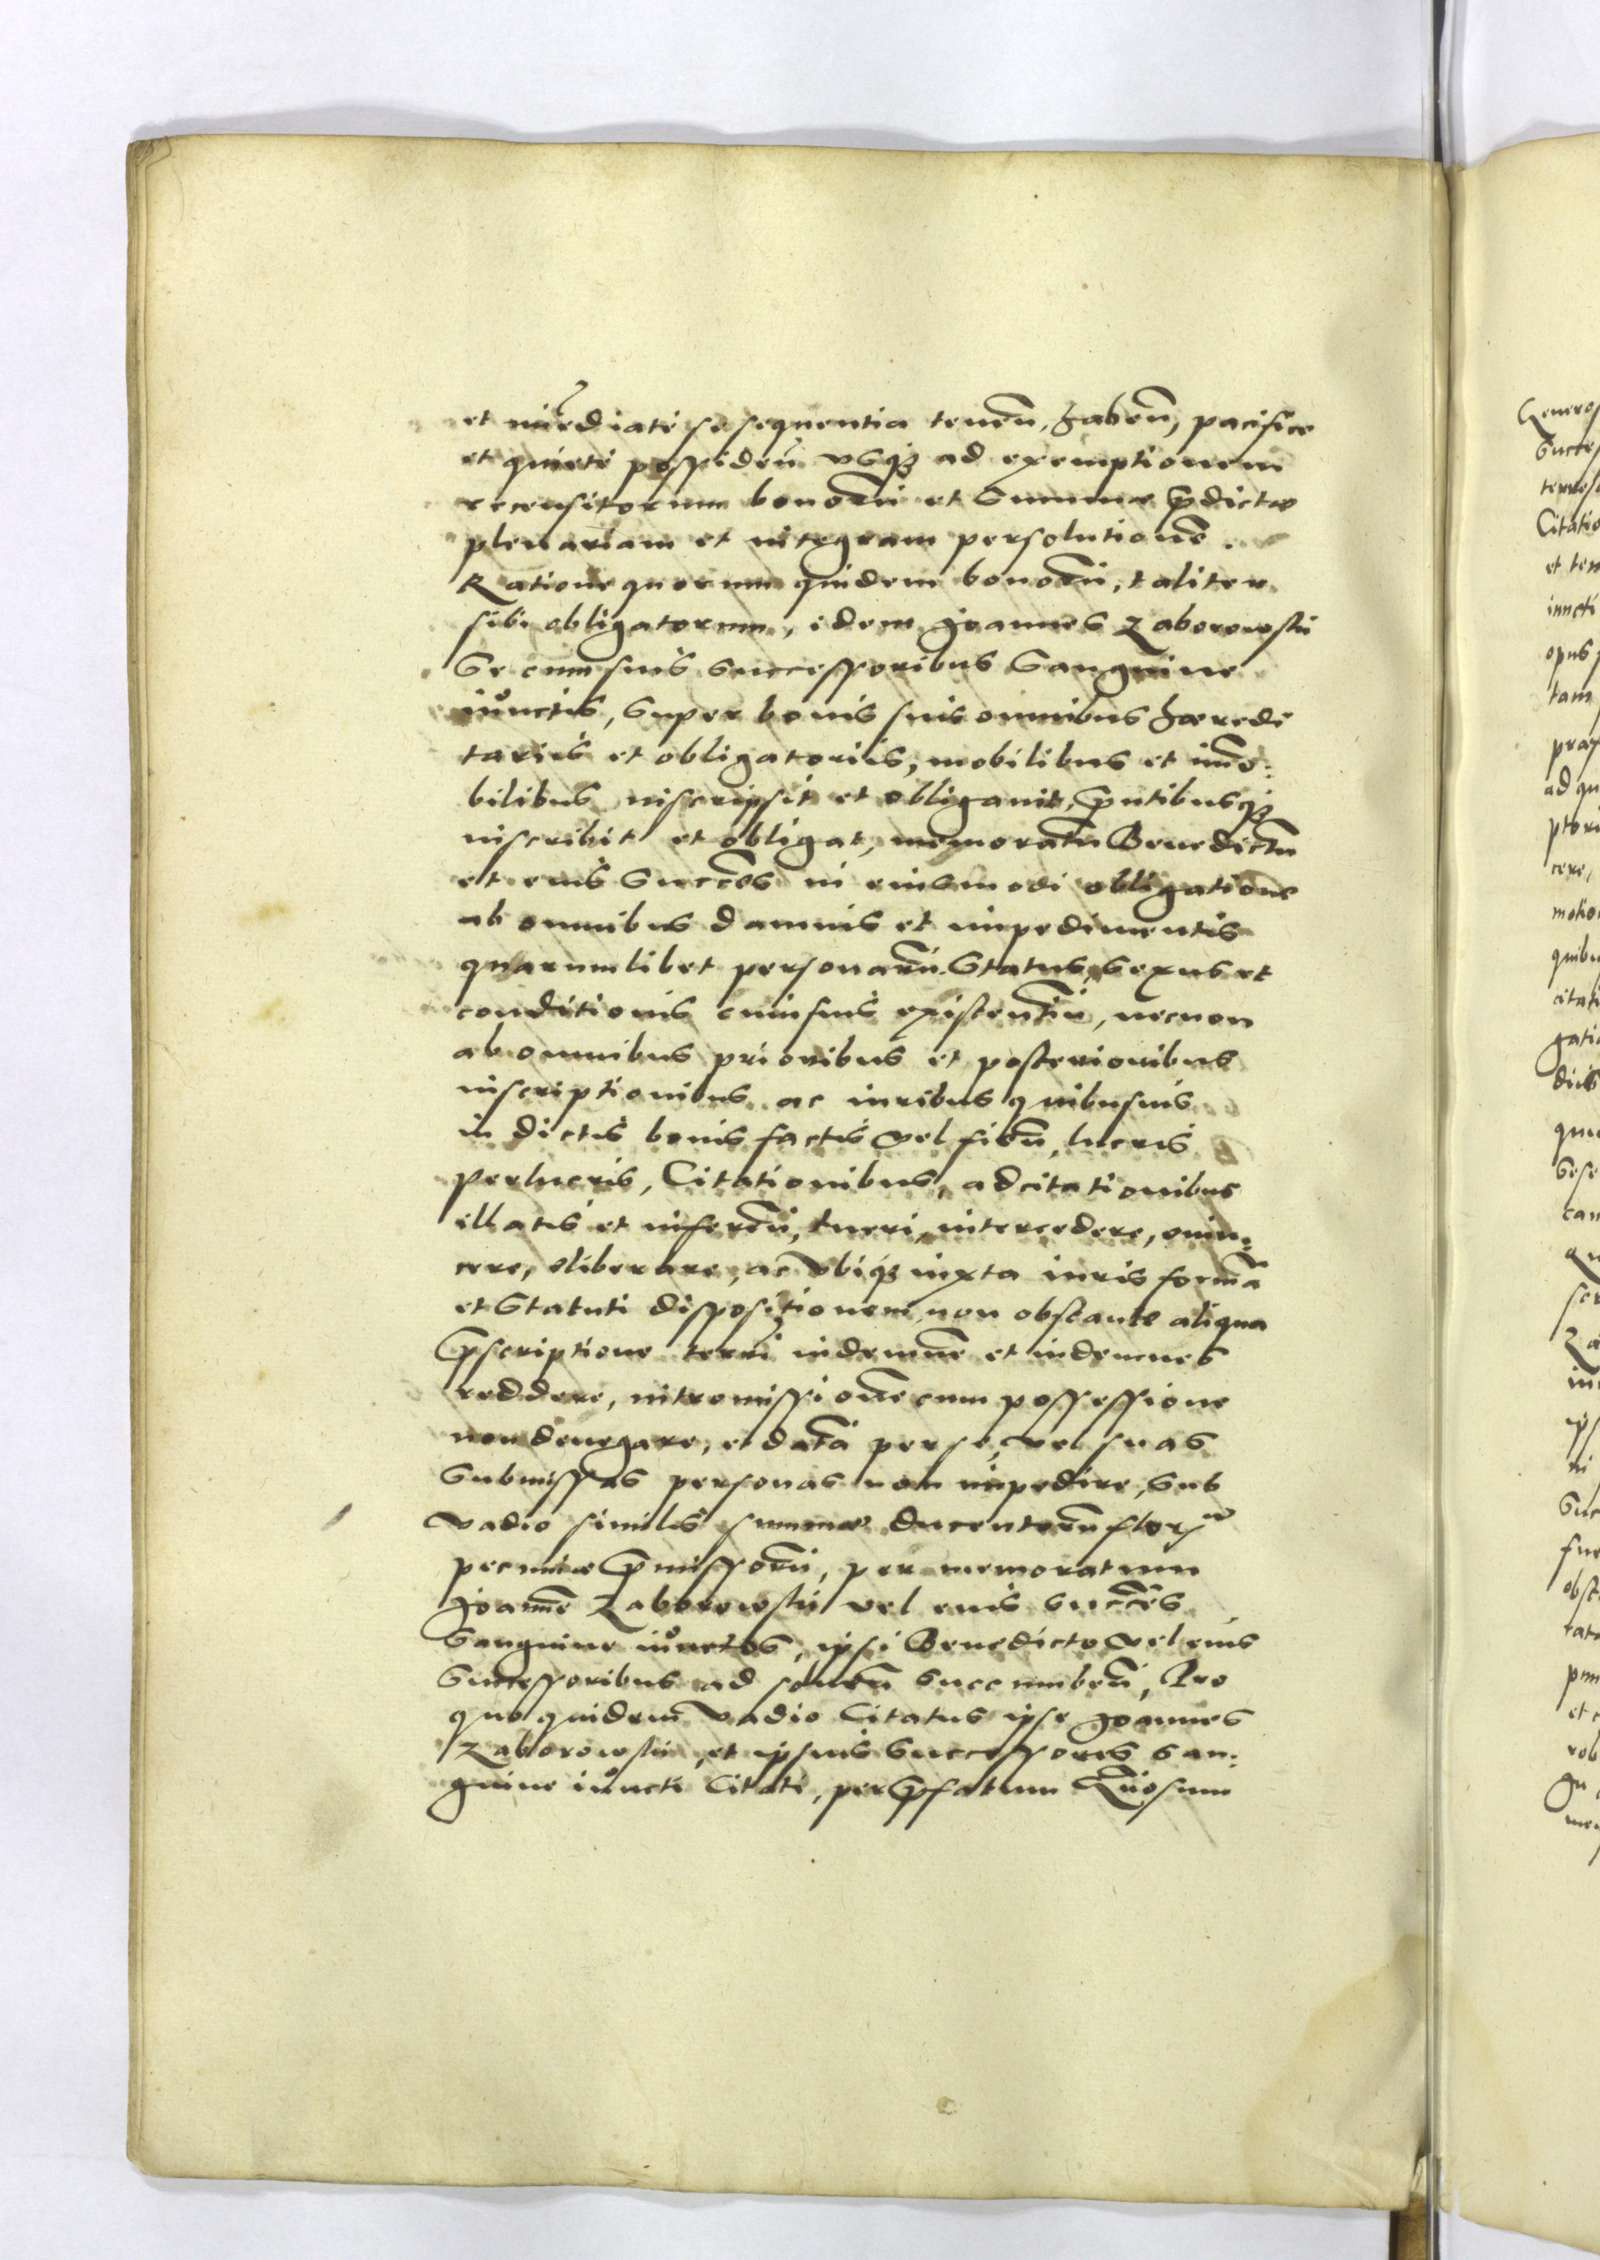 et im̃ediate se sequentia teneñ, habeñ, pacifice
et quiete possideñ vsq3 ad exemptionem
recensitorum bonorũ et Summae p̃dictae
plenariam et integram persolutionẽ.
Ratione quorum quidem bonorũ, taliter
sibi obligatorum, idem Joannes Zaborowski
Se cum suis Successoribus Sanguine
iunctis, Super bonis suis omnibus haeredi
tariis et obligatoriis, mobilibus et im̃o:
bilibus inscripsit et obligauit, p̃ntibusq3
inscribit et obligat, memoratũ Benedictũ
et eius Succẽs in eiusmodi obligatione
ab omnibus damnis et impedimentis
quarumlibet personarũ Status, Sexus et
conditionis cuiusuis existentiũ, necnon
ab omnibus prioribus et posterioribus
inscriptionibus ac iuribus quibusuis
in dictis bonis factis vel fieñ, lucris
perlucris, Citationibus, adcitationibus
illatis et infereñ, tueri, intercedere, euin:
cere, eliberare, ac vbiq3 iuxta iuris formã
et Statuti dispositionem, non obstante aliqua
p̃scriptione terrae indemnẽ et indemnes
reddere, intromissionẽ cum possessione
non denegare, et datã per se, vel suas
Submissas personas non impedire, Sub
vadio similis summae ducentorũ flor
pecuniae p̃missorũ, per memoratum
Joannẽ Zaborowski vel eius Succẽs
Sanguine iunctos, ipsi Benedicto vel eius
Successoribus ad solueñ Succumbeñ, Pro
quo quidem vadio Citatus ipse Joannes
Zaborowski, et ipsius Successores San:
guine iuncti Citati, per p̃fatum Gñosum